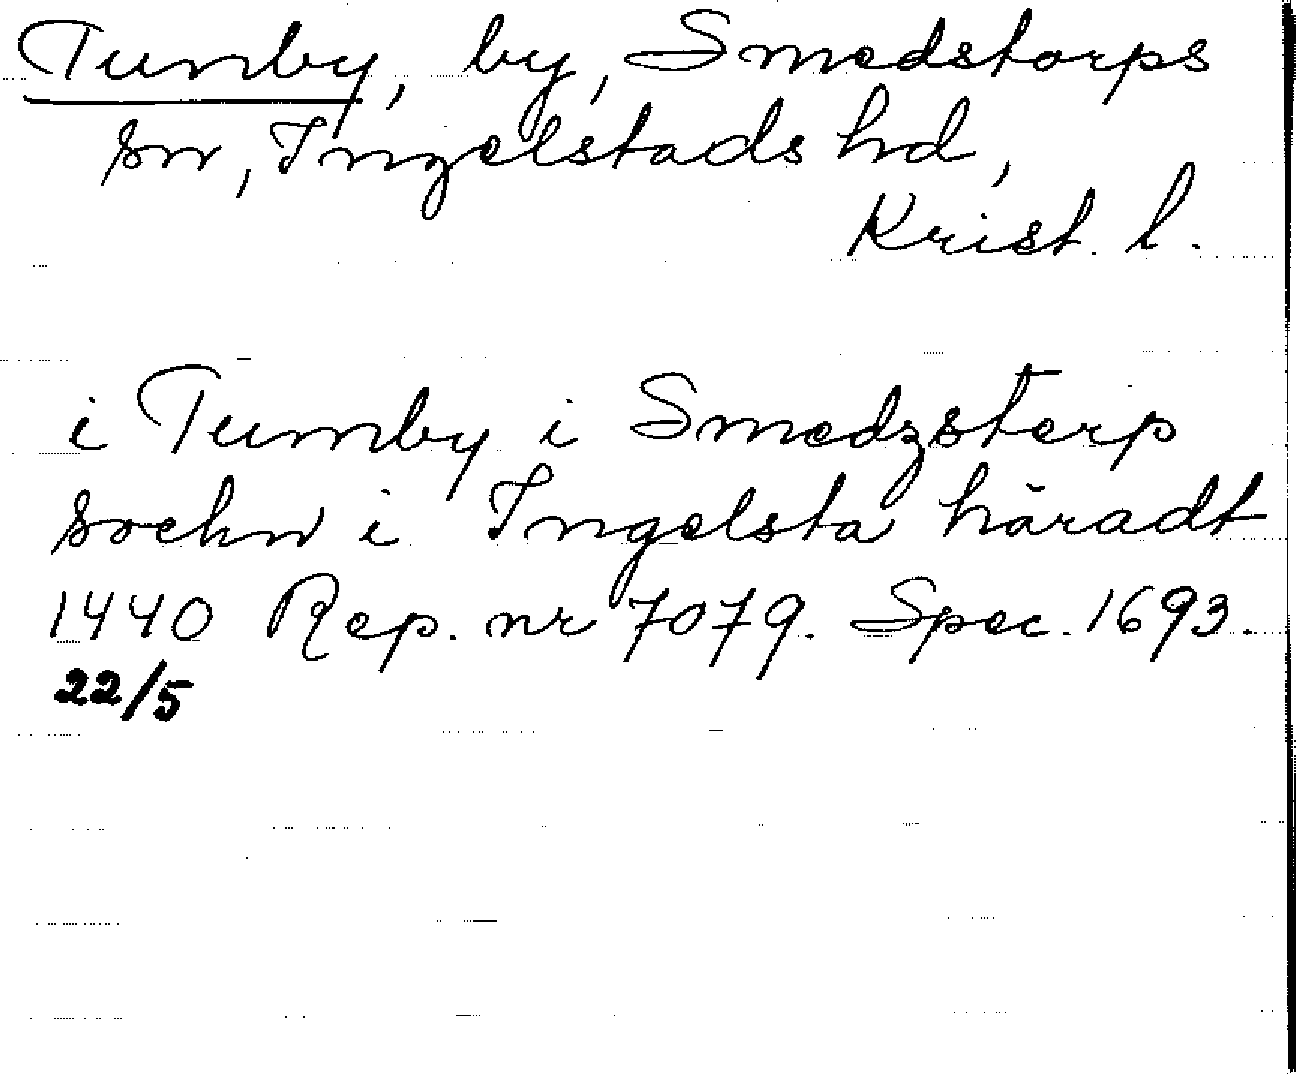 Tumby, by, Smedstorps
sn, Ingelstads hd,
Krist. l.
i Tumby i Smedzsterp
soehn i Ingelsta häradt
1440 Rep. nr 7079. Spec. 1693.
22/5